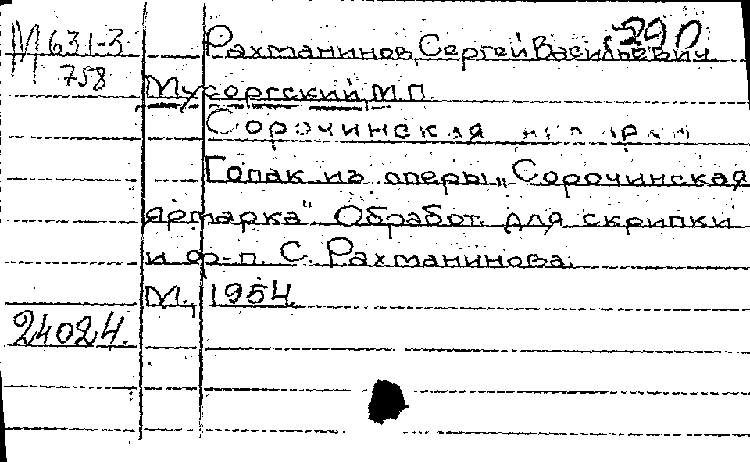 М 631-3
758
290
Рахманинов, Сергей Васильевич
Мусоргский, М.П.
Сорочинская ярмарка
Гопак из оперы „Сорочинская
ярмарка". Обработ. для скрипки
и ф-п. С. Рахманинова.
М., 1954.
24024.